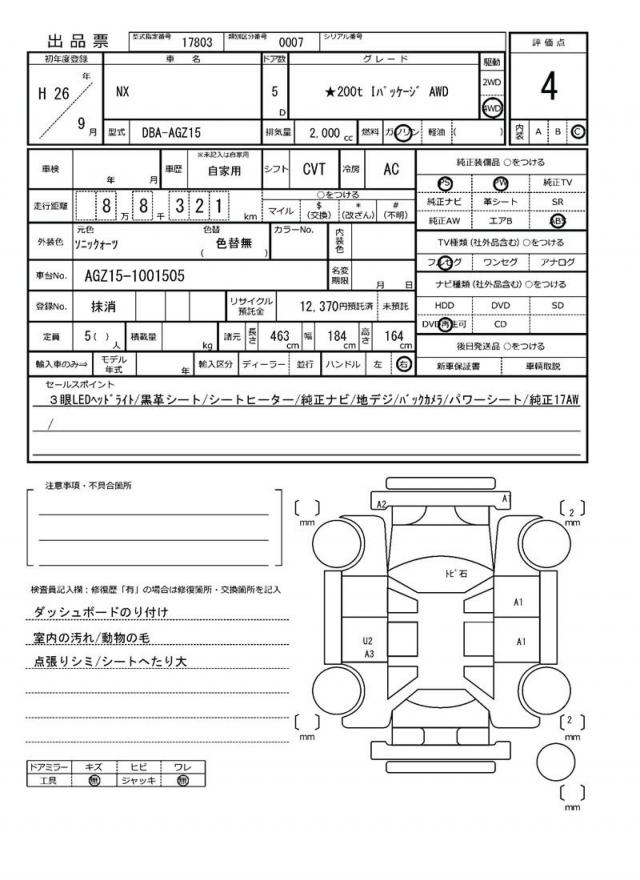 出品票 型式指定番号 17803 類別区分番号 0007 シリアル番号
評価点
4
初年度登録 車名 ドア数 グレード 駆動
H 26 年 9 月
NX
5 D
★200t Iパッケージ AWD
2WD
4WD
型式 DBA-AGZ15 排気量 2,000 cc 燃料 ガソリン 軽油 ( )
内装 A B C
車検 年 月 車歴 ※未記入は自家用 自家用 シフト CVT 冷房 AC
走行距離 8万 8千 321 km
○をつける
マイル $(交換) *(改ざん) #(不明)
外装色 元色 ソニックォーツ 色替 ( 色替無 ) カラーNo. 内装色
車台No. AGZ15-1001505 名変期限 月 日
登録No. 抹消 リサイクル預託金 12,370円預託済 未預託
定員 5( )人 積載量 kg 諸元 長さ 463cm 幅 184cm 高さ 164cm
輸入車のみ⇒ モデル年式 年 輸入区分 ディーラー 並行 ハンドル 左 右
純正装備品 ○をつける
PS PW 純正TV
純正ナビ 革シート SR
純正AW エアB ABS
TV種類(社外品含む) ○をつける
フルセグ ワンセグ アナログ
ナビ種類(社外品含む) ○をつける
HDD DVD SD
DVD再生可 CD
後日発送品 ○をつける
新車保証書 車輌取説
セールスポイント
3眼LEDヘッドライト/黒革シート/シートヒーター/純正ナビ/地デジ/バックカメラ/パワーシート/純正17AW
/
注意事項・不具合箇所
検査員記入欄：修復歴「有」の場合は修復箇所・交換箇所を記入
ダッシュボードのり付け
室内の汚れ/動物の毛
点張りシミ/シートへたり大
ドアミラー キズ ヒビ ワレ
工具 無 ジャッキ 無
A2 A1
〔 〕mm
〔 2 〕mm
トビ石
A1
U2
A3
A1
〔 〕mm
〔 2 〕mm
〔 〕mm